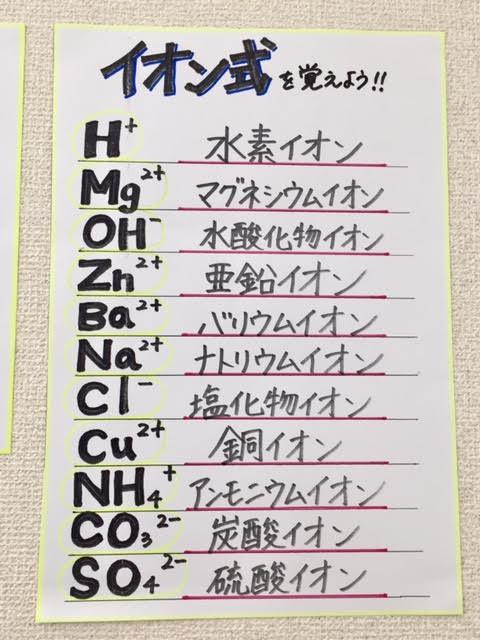 イオン式を覚えよう!!
H⁺ 水素イオン
Mg²⁺ マグネシウムイオン
OH⁻ 水酸化物イオン
Zn²⁺ 亜鉛イオン
Ba²⁺ バリウムイオン
Na²⁺ ナトリウムイオン
Cl⁻ 塩化物イオン
Cu²⁺ 銅イオン
NH₄⁺ アンモニウムイオン
CO₃²⁻ 炭酸イオン
SO₄²⁻ 硫酸イオン